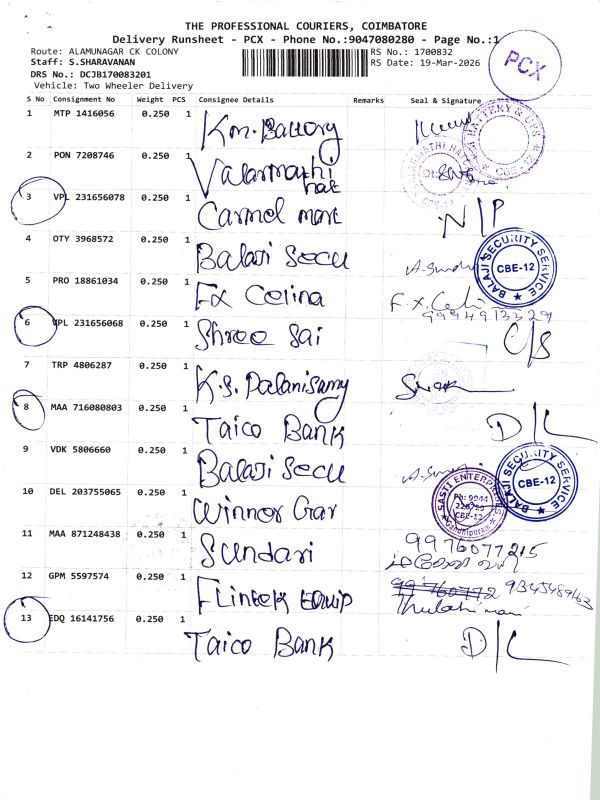 THE PROFESSIONAL COURIERS, COIMBATORE
Delivery Runsheet - PCX - Phone No.:9047080280 - Page No.:1
Route: ALAMUNAGAR CK COLONY
RS No.: 1700832
Staff: S.SHARAVANAN
RS Date: 19-Mar-2026
DRS No.: DCJB170083201
Vehicle: Two Wheeler Delivery
PCX
S No Consignment No Weight PCS Consignee Details Remarks Seal & Signature
1 MTP 1416056 0.250 1 Km. Battory
BATTERY & UPS CBE-12
2 PON 7208746 0.250 1 Valarmathi
3 VPL 231656078 0.250 1 Carmel mart N/P
4 OTY 3968572 0.250 1 Balaji Secu
BALAJI SECURITY SERVICE CBE-12
5 PRO 18861034 0.250 1 Fx Celina F.x. 9994913329
6 VPL 231656068 0.250 1 Shree Sai
7 TRP 4806287 0.250 1 K.S. Palanisamy
8 MAA 716080803 0.250 1 Taico Bank D/L
9 VDK 5806660 0.250 1 Balaji Secu
BALAJI SECURITY SERVICE CBE-12
10 DEL 203755065 0.250 1 Winner Gar
SASTI ENTERPRISES Ph: 9944 CBE-12
11 MAA 871248438 0.250 1 Sundari 9976077215
12 GPM 5597574 0.250 1 Flintek Equip 9345489163
Thulasimani
13 EDQ 16141756 0.250 1 Taico Bank D/L